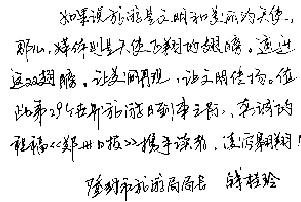 如果说旅游是文明和美丽的天使,
那么,媒体则是天使飞翔的翅膀。通过
这双翅膀。让美丽再现,让文明传扬。值
此第29个世界旅游日到来之际,真诚的
祝福《郑州日报》携手读者,展翅翱翔!
市旅游局局长